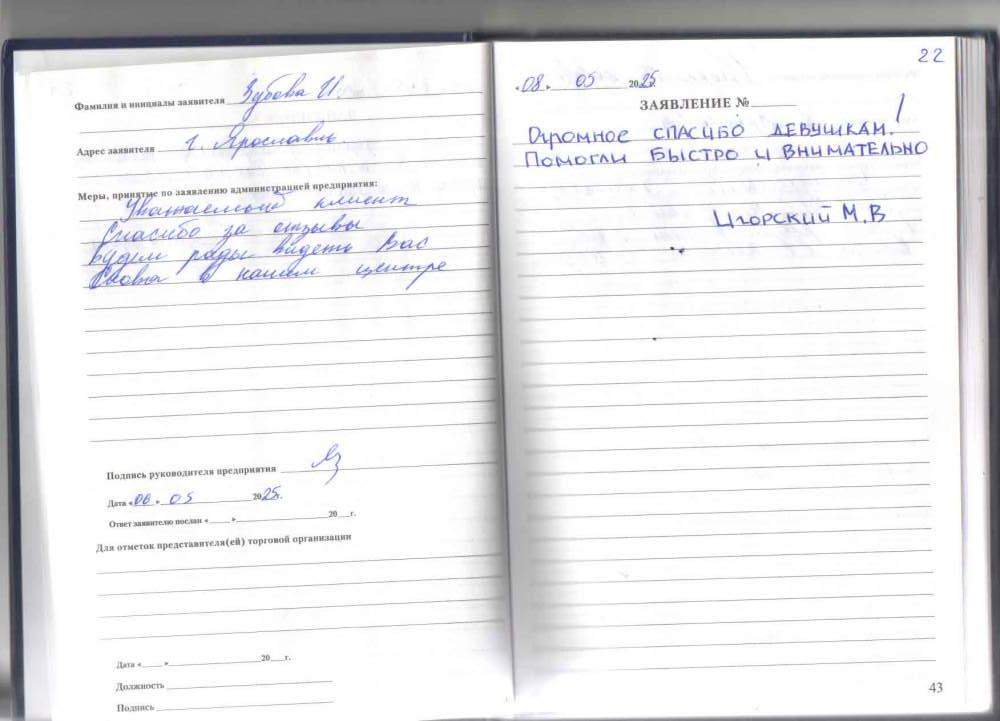 Фамилия и инициалы заявителя Зубова И.
Адрес заявителя г. Ярославль.
Меры, принятые по заявлению администрацией предприятия:
Уважаемый клиент
Спасибо за отзывы
Будем рады видеть Вас
Снова в нашем центре
Подпись руководителя предприятия
Дата «06» 05 2025г.
Ответ заявителю послан «____»____________20___г.
Для отметок представителя(ей) торговой организации
Дата «____»____________20___г.
Должность
Подпись
22
«08» 05 2025.
ЗАЯВЛЕНИЕ №
Огромное СПАСИБО ДЕВУШКАМ!
ПОМОГЛИ БЫСТРО И ВНИМАТЕЛЬНО
Игорский М.В
43